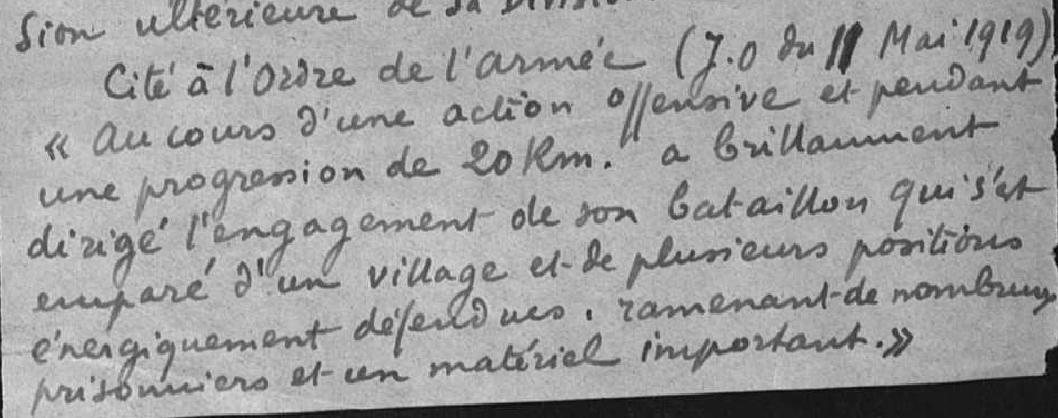 sion ultérieure de sa Divisi
Cité à l'Ordre de l'armée (J.O du 11 Mai 1919)
« Au cours d'une action offensive et pendant
une progression de 20 Km. a brillamment
dirigé l'engagement de son bataillon qui s'est
emparé d'un village et de plusieurs positions
énergiquement défendues. ramenant de nombreux
prisonniers et un matériel important. »